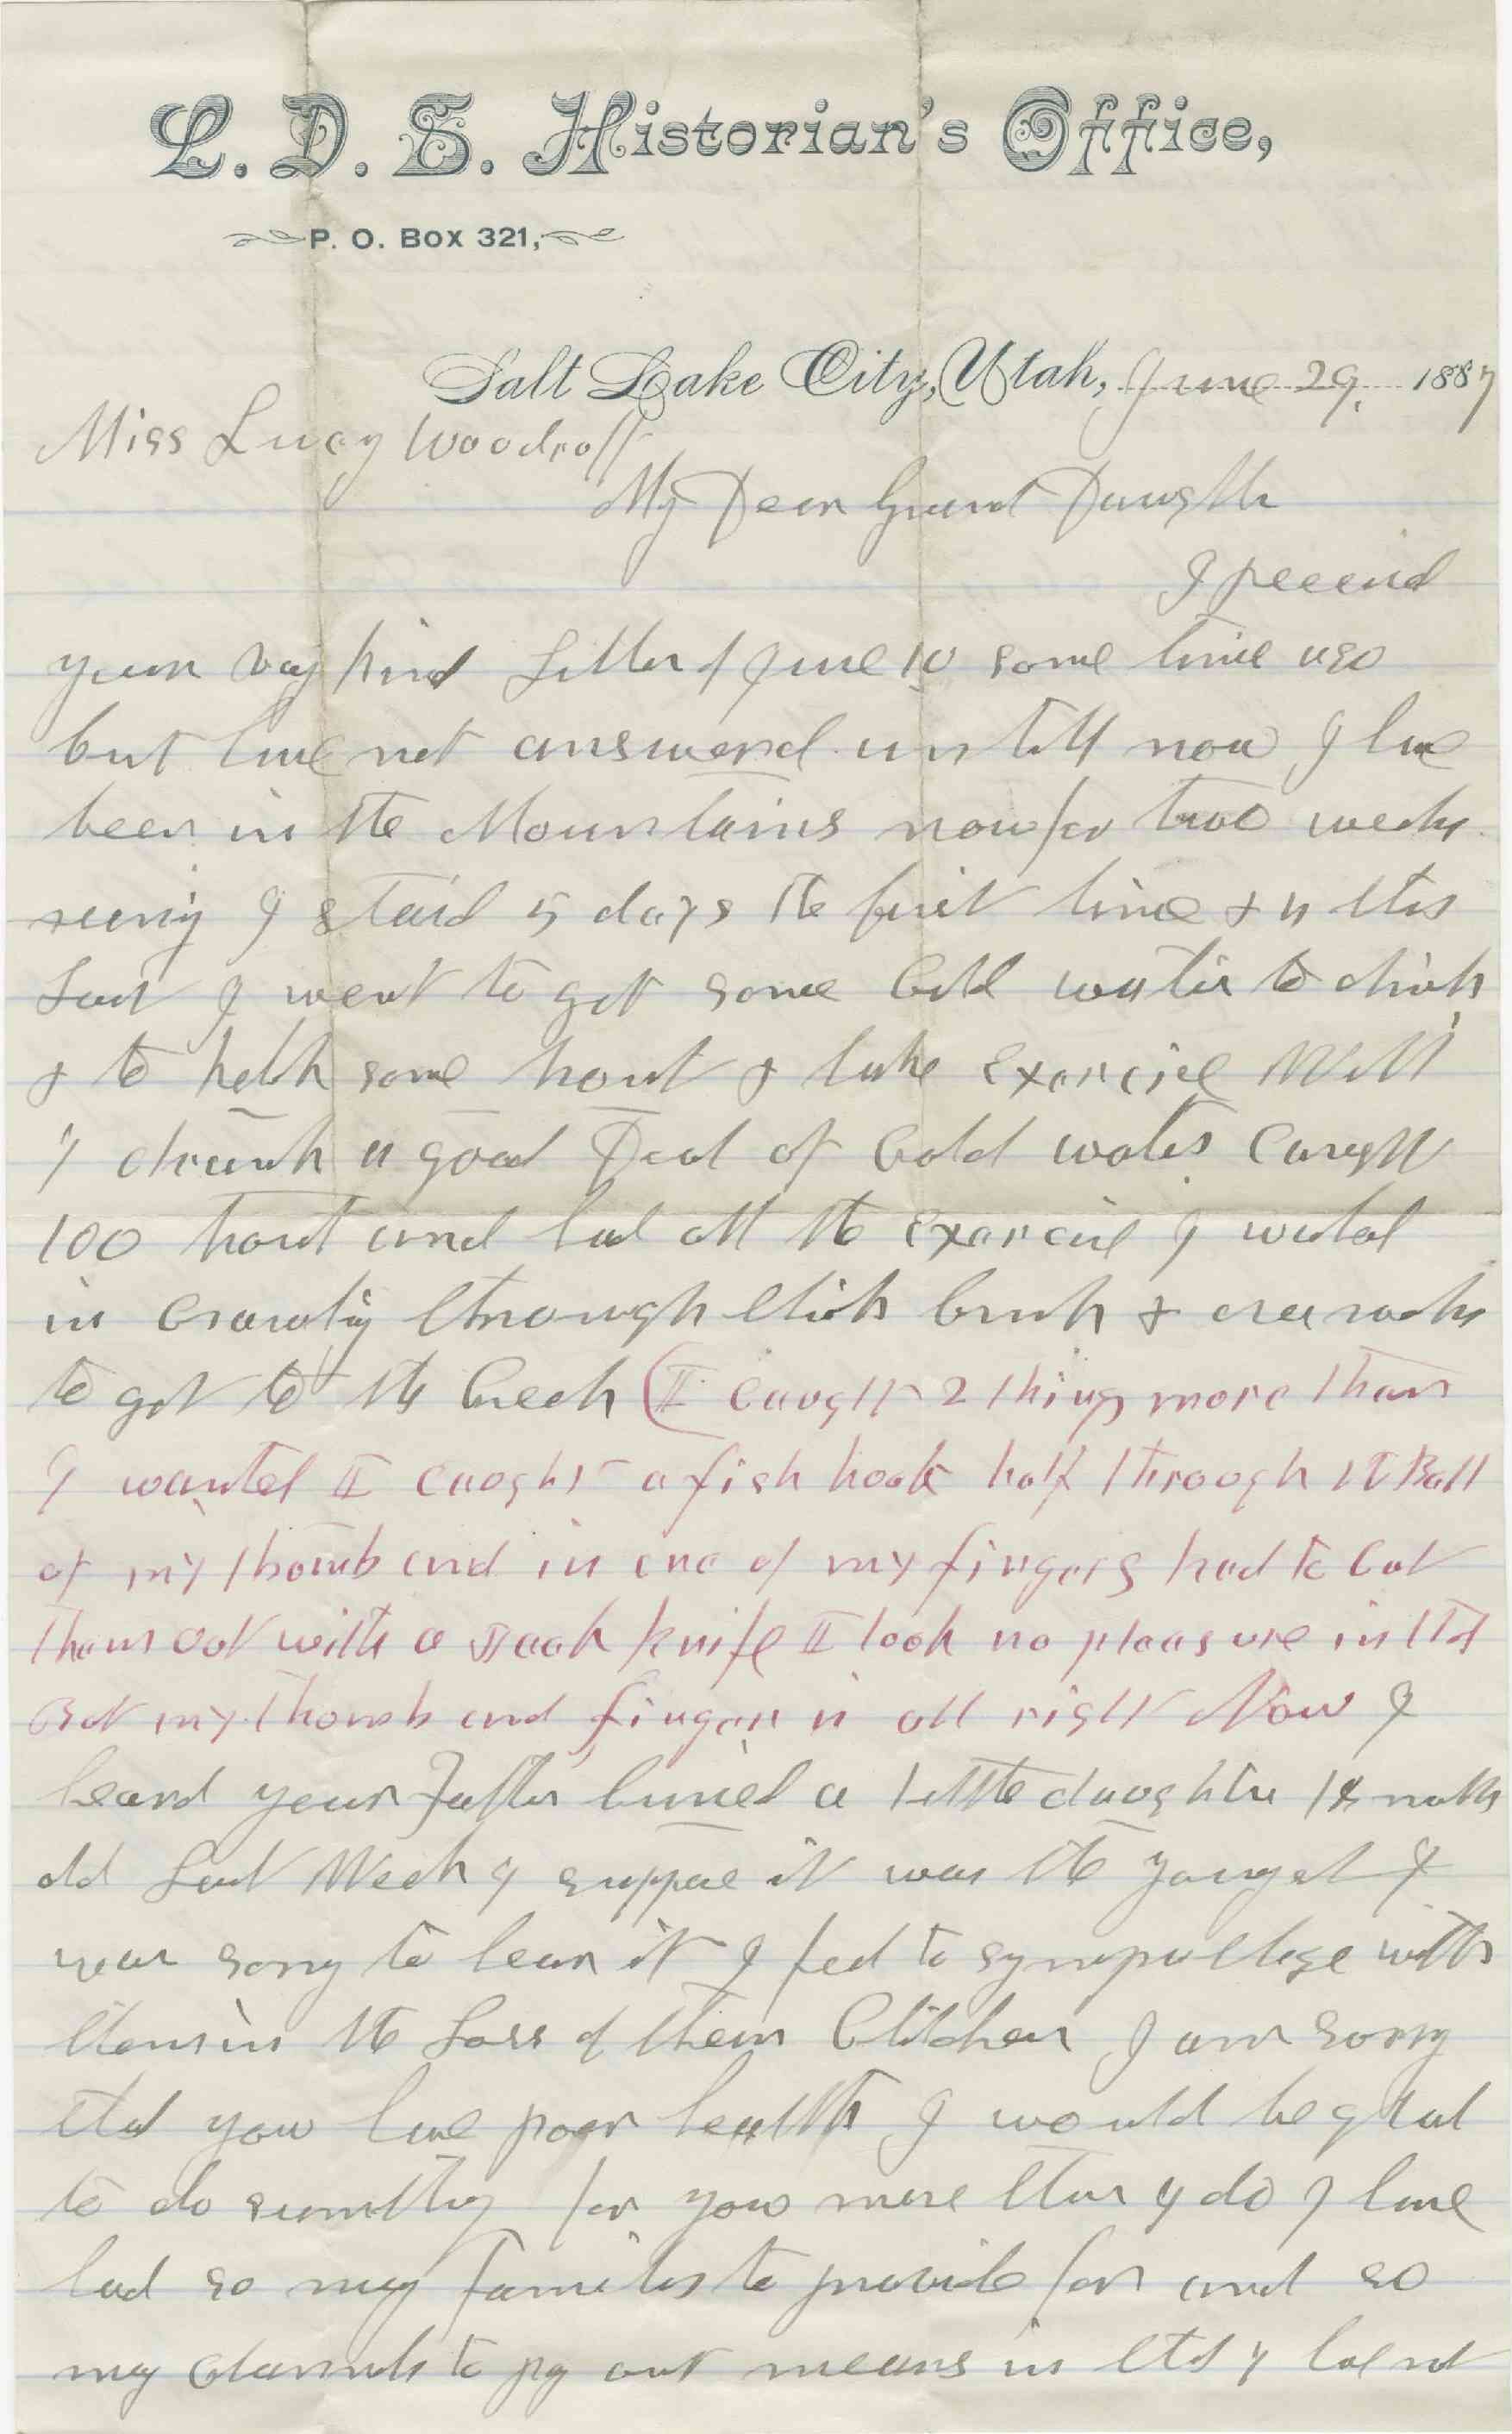 L. D. S. Historian's Office,
P. O. Box 321,
Salt Lake City, Utah, June 29, 1887
Miss Lucy Woodruff
My Dear Grand Daughter
I receivd
your vary kind Letter of June 10 some time ago
but have not answerd untill now I have
been in the Mountains now for two weeks
I staid 5 days the first time & 4 this
Last I went to get some Cold water to drink
& to ketch some trout & take Exercise Well
I drank a good Deal of Cold water Caught
100 trout and had all the exercise I wanted
in Crawling through thick brush & over rocks
to get to the Creek (I caught 2 things more than
I wanted I caught a fish hook half through the Ball
of my thomb and in one of my fingers had to cut
them out with a Jack knife I took no pleasure in that
But my thomb and finger is all right Now I
heard your Father buried a little daughter 18 months
old Last Week I suppose it was the youngest I
was sorry to hear it I feel to sympathize with
them in the Loss of their Children I am sorry
that you have poor health I would be glad
to do sumthing for you more than I do I have
had so many families to provide for and so
many demands to pay out means in that I had not